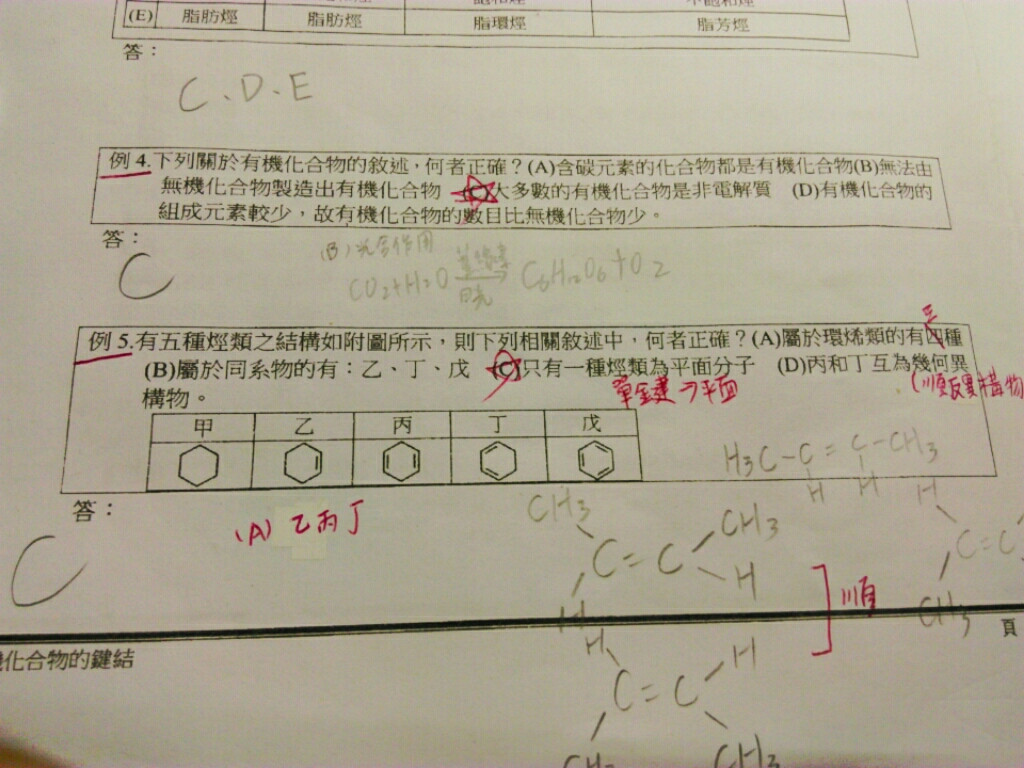 (E) 脂肪烴 脂肪烴 脂環烴 脂芳烴
答：
C、D、E
例 4.下列關於有機化合物的敘述，何者正確？(A)含碳元素的化合物都是有機化合物(B)無法由
無機化合物製造出有機化合物 (C)大多數的有機化合物是非電解質 (D)有機化合物的
組成元素較少，故有機化合物的數目比無機化合物少。
答：
C
(B)光合作用
CO2+H2O 葉綠素 日光 C6H12O6+O2
例 5.有五種烴類之結構如附圖所示，則下列相關敘述中，何者正確？(A)屬於環烯類的有四種
三
(B)屬於同系物的有：乙、丁、戊 (C)只有一種烴類為平面分子 (D)丙和丁互為幾何異
構物。
單鍵→平面
(順反異構物
甲 乙 丙 丁 戊
H3C-C=C-CH3
H H
答：
C
(A) 乙丙丁
CH3 CH3
C=C
H H
H
C=C
CH3
順
H H
C=C
CH3 CH3
頁
化合物的鍵結